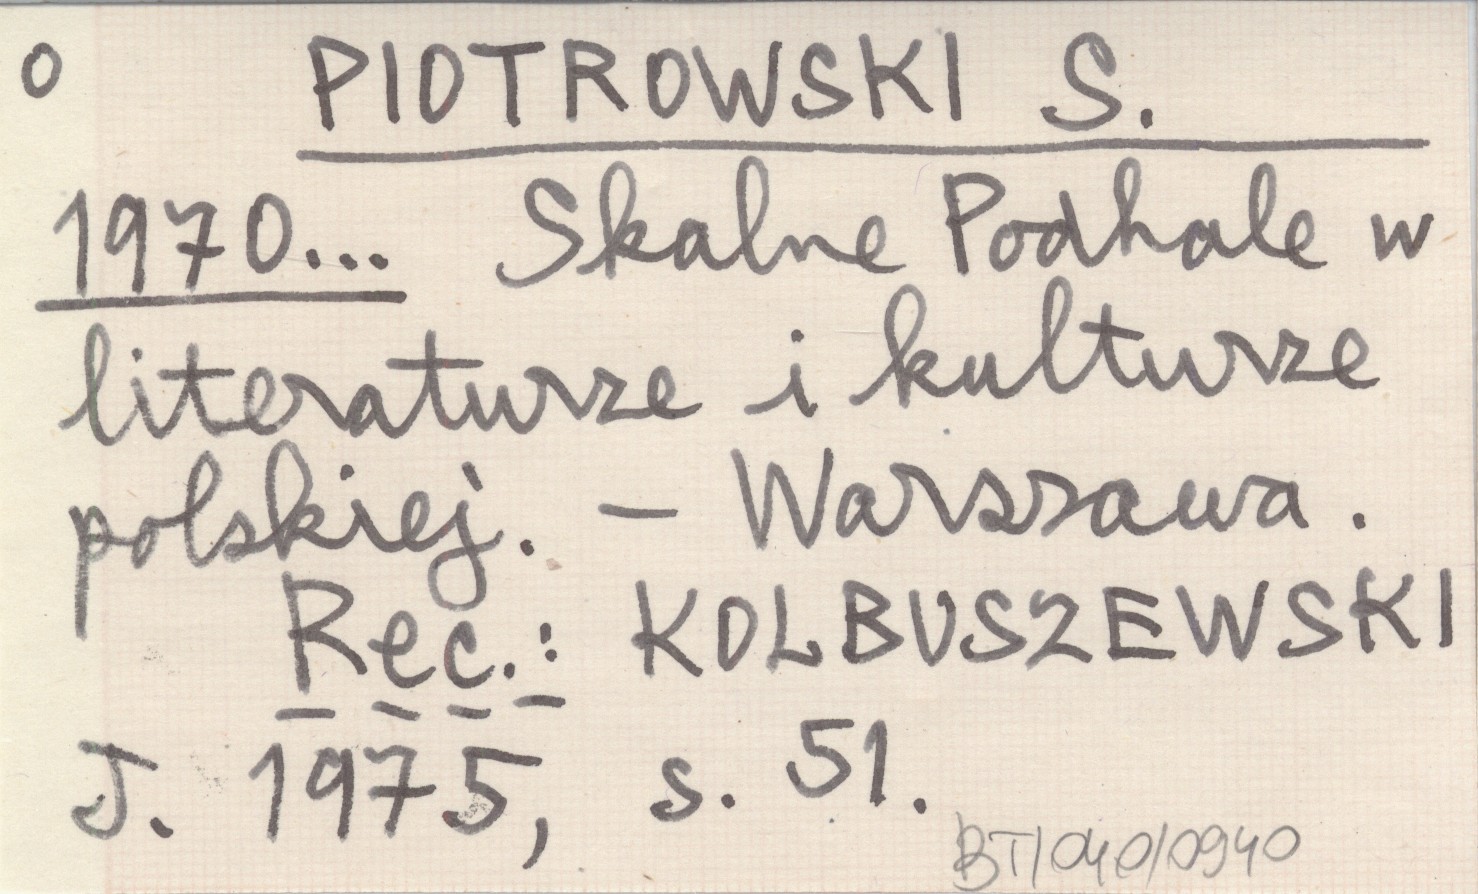 o PIOTROWSKI S.
1970... Skalne Podhale w
literaturze i kulturze
polskiej. – Warszawa.
Rec.: KOLBUSZEWSKI
J. 1975, s. 51.
BT/040/0940